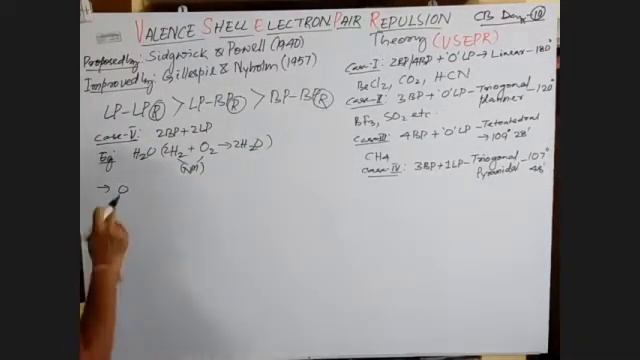 VALENCE SHELL ELECTRON PAIR REPULSION
CB Day-10
Theory (VSEPR)
Proposed by: Sidgwick & Powell (1940)
Improved by: Gillespil & Nyholm (1957)
LP-LP(R) > LP-BP(R) > BP-BP(R)
Case-V: 2BP+2LP
Eg: H2O (2H2 + O2 → 2H2O)
→ O
Case-I: 2BP/4BP + 'O' LP → Linear - 180°
BeCl2, CO2, HCN
Case-II: 3BP + 'O' LP - Triogonal planner - 120°
BF3, SO2 etc.
Case-III: 4BP + 'O' LP - Tetrahedral
→ 109° 28'
CH4
Case-IV: 3BP + 1LP - Triogonal - 107°
Pyramidal 48'